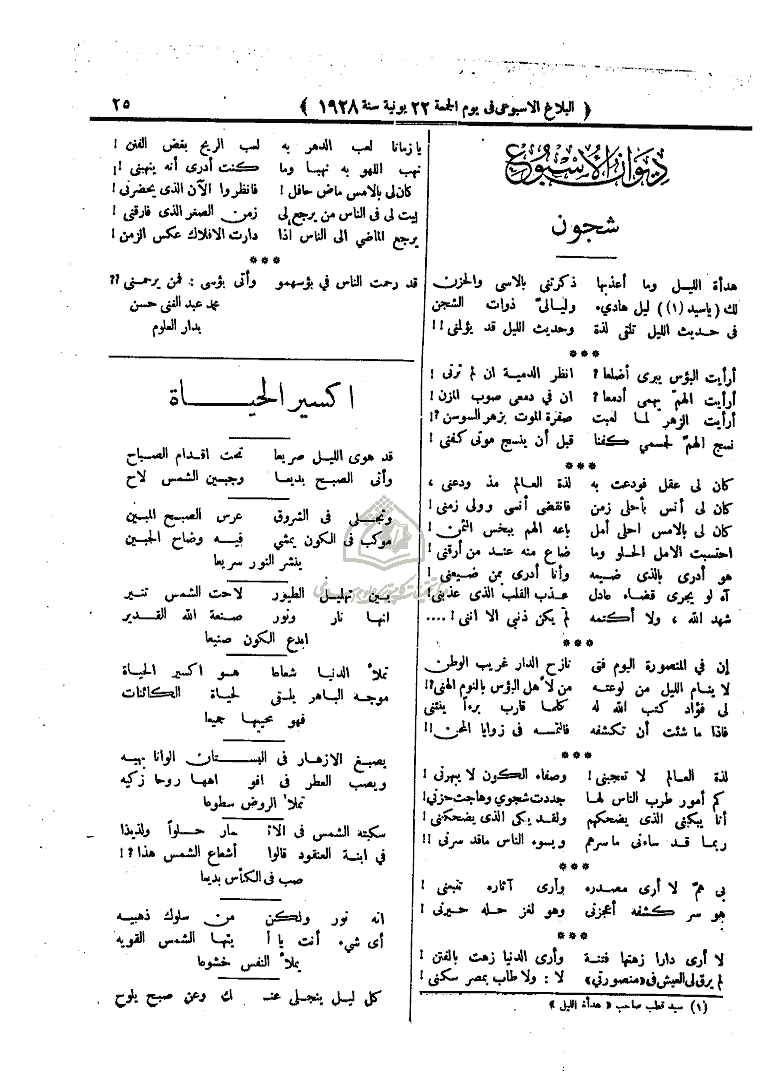 ﴿ البلاغ الاسبوعى فى يوم الجمعة ٢٢ يونية سنة ١٩٢٨ ﴾
٢٥
ديوان الأسبوع
شجون
هدأة الليل وما أعذبها ذكرتنى بالاسى والحزن
لك (ياسيد (١)) ليل هادىء وليالىّ ذوات الشجن
فى حديث الليل تلقى لذة وحديث الليل قد يؤلنى !!
***
أرأيت البؤس يبرى أضلعا ؟ انظر الدمية ان لم ترنى !
أرأيت الهمّ يهمى أدمعا ؟ ان فى دمعى صوب المزن !
أرأيت الزهر لما لعبت صفرة الموت بزهر السوسن ؟!
نسج الهمّ لجسمي كفنا قبل أن ينسج موتى كفنى !
***
كان لى عقل فودعت به لذة العالم مذ ودعنى ،
كان لى أنس بأحلى زمن فانقضى أنسى وولى زمنى !
كان لى بالامس احلى أمل باعه الهم ببخس الثمن !
احتسيت الامل الحلو وما ضاع منه عند من أرقنى !
هو أدرى بالذى ضيعه وأنا أدرى بمن ضيعنى !
آه لو يجرى قضاء عادل عذب القلب الذى عذبنى !
شهد الله ، ولا أكتمه لم يكن ذنبى الا اننى ! ....
***
إن في المنصورة اليوم فتى نازح الدار غريب الوطن
لا ينام الليل من لوعته من لأهل البؤس بالنوم الهنى ؟!
لى فؤاد كتب الله له كلما قارب برءاً ينثنى
فاذا ما شئت أن تكشفه فالتمسه فى زوايا المحن !!
***
لذة العالم لا تعجبنى ! وصفاء الكون لا يبهرنى !
كم أمور طرب الناس لها جددت شجوي وهاجت حزنى !
أنا يبكينى الذى يضحكهم ولقد يبكى الذى يضحكنى !
ربما قد ساءنى ماسرهم ويسوء الناس ماقد سرنى !!
***
بى همّ لا أرى مصدره وأرى آثاره تتبعنى !
هو سر كشفه أعجزنى وهو لغز حله حيرنى !
***
لا أرى دارا زهتها فتنة وأرى الدنيا زهت بالفتن !
لم يرق لى العيش فى «منصورتي» لا : ولا طاب بمصر سكنى !
(١) سيد قطب صاحب « هدأة الليل »
يازمانا لعب الدهر به لعب الريح بغض الفنن !
نهب اللهو به نهبا وما كنت أدرى أنه ينهبنى !
كان لى بالامس ماض حافل ! فانظروا الآن الذى يحضرنى !
ليت لى فى الناس من يرجع لى زمن الصفر الذى فارقنى !
يرجع الماضي الى الناس اذا دارت الافلاك عكس الزمن !
***
قد رحمت الناس في بؤسهمو وأنى بؤسى : فمن يرحمنى ؟؟
محمد عبد الغنى حسن
بدار العلوم
اكسير الحياة
قد هوى الليل صريعا تحت اقدام الصباح
وأتى الصبح بديعا وجبين الشمس لاح
وتجلى فى الشروق عرس الصبح المبين
موكب فى الكون يمشي فيه وضاح الجبين
ينشر النور سريعا
بين تهليل الطيور لاحت الشمس تنير
انها نار ونور صنعة الله القدير
ابدع الكون صنيعا
تملأ الدنيا شعاعا هو اكسير الحياة
موجه الباهر يلقى لحياة الكائنات
فهو محييها جميعا
يصبغ الازهار فى البستان الوانا بهيه
ويصب العطر فى افواهها روحا زكيه
تملأ الروض سطوعا
سكبته الشمس فى الاثمار حلواً ولذيذا
في ابنة العنقود قالوا أشعاع الشمس هذا ؟!
صب فى الكأس بديعا
انه نور ولكن من سلوك ذهبيه
أى شىء أنت يا أيتها الشمس القويه
يملأ النفس خشوعا
كل ليل ينجلى عنك وعن صبح يلوح